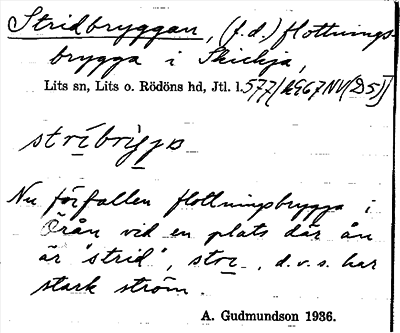 Stridbryggan, (f.d.) flottnings-
brygga i
Lits sn, Lits o. Rödöns hd, Jtl. l. 577/
Nu förfallen flottningsbrygga i
Örån vid en plats där ån
är "strid", d.v.s. har
stark ström.
A. Gudmundson 1936.